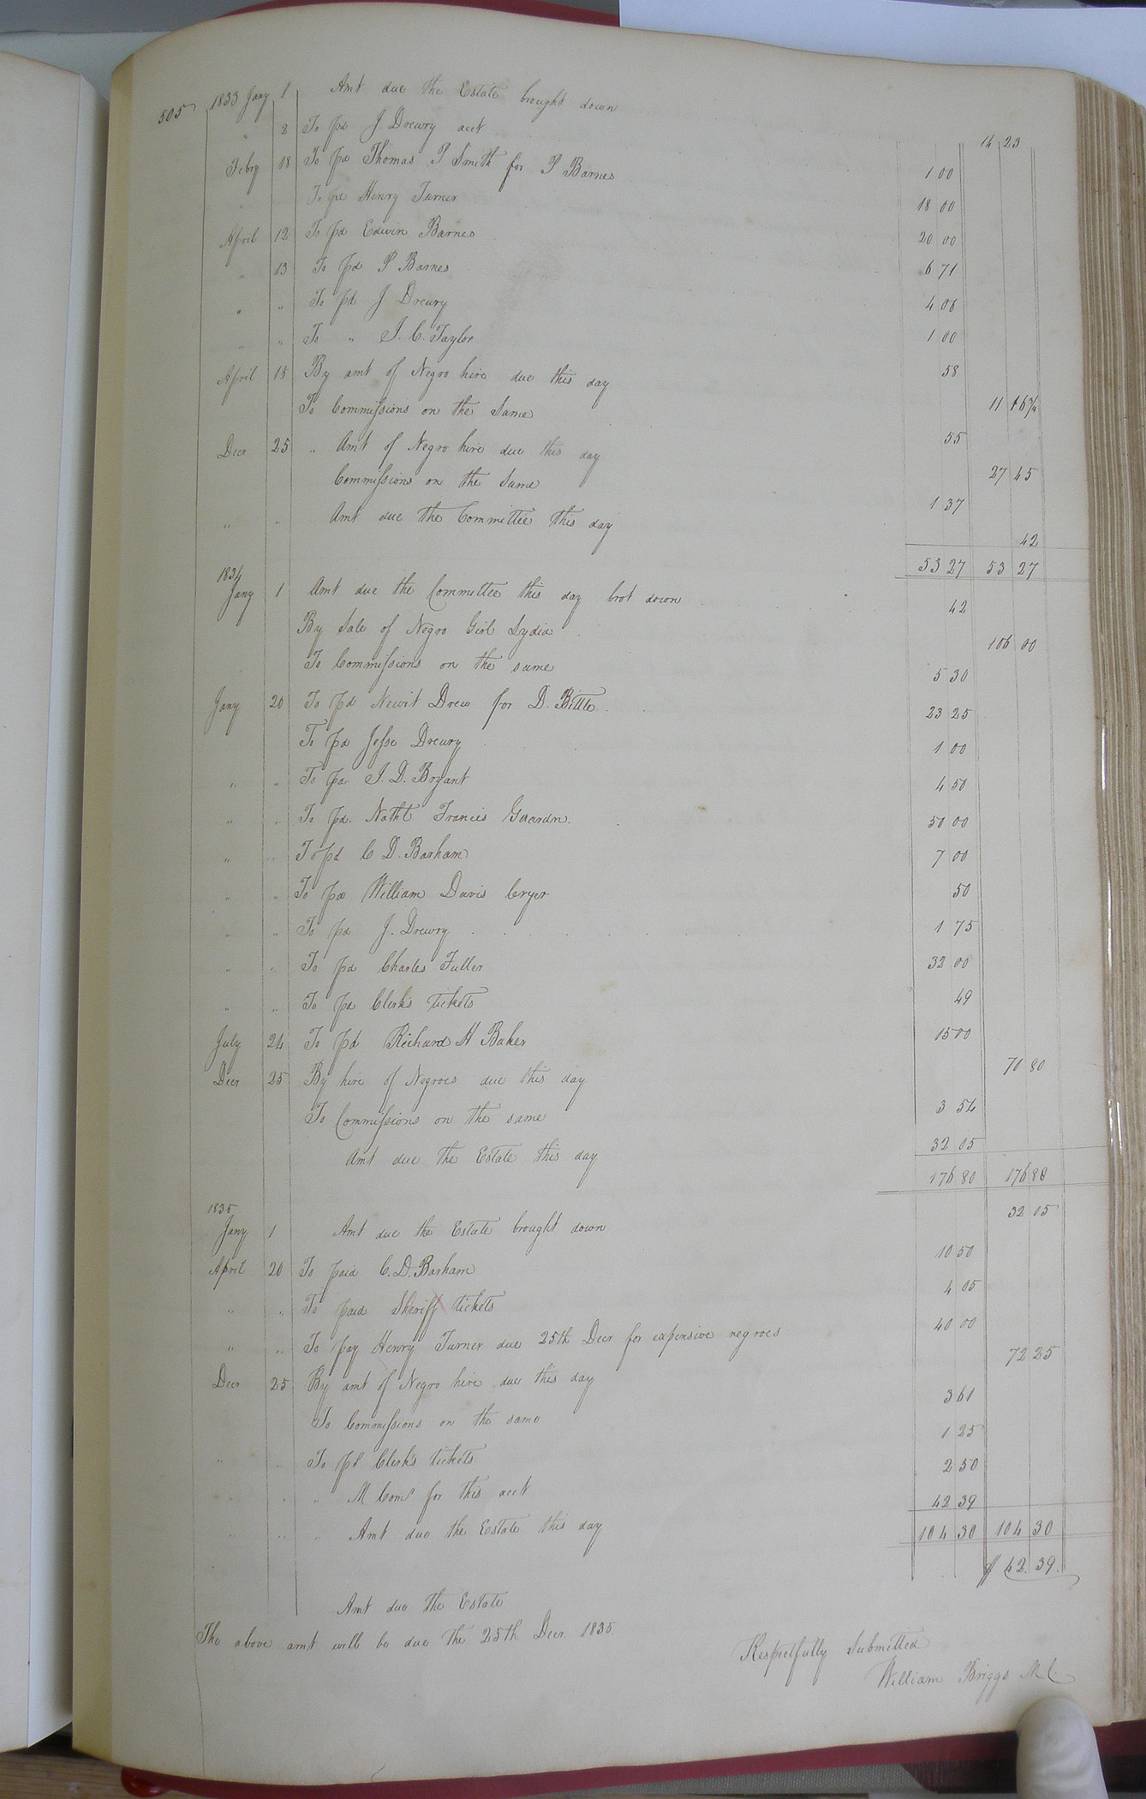 505 1833 Jany 1 Amt due the Estate brought down 14 23
" 8 To pd J. Drewry acct 1 00
Febry 18 To pd Thomas P Smith for P Barnes 18 00
" To pd Henry Turner 20 00
April 12 To pd Edwin Barnes 6 71
" 13 To pd P Barnes 4 06
" " To pd J Drewry 1 00
" " To " J. C. Taylor 58
April 18 By amt of Negro hire due this day 11
To Commissions on the Same 55
Decr 25 " Amt of Negro hire due this day 27 45
Commissions on the Same 1 37
" " Amt due the Committee this day 42
53 27 53 27
1834
Jany 1 Amt due the Committee this day brot down 42
By Sale of Negro Girl Lydia 106 00
To Commissions on the same 5 30
Jany 20 To pd Newit Drew for D. Bittle 23 25
To pd Jesse Drewry 1 00
" " To pd J. D. Bryant 4 50
" " To pd. Nathl Francis Guardn. 50 00
" " To pd C D. Barham 7 00
" " To pd William Davis Cryer 50
" " To pd J. Drewry 1 75
" " To pd Charles Fuller 32 00
" " To pd Clerks tickets 49
July 24 To pd Richard H Baker 15 00
Decr 25 By hire of Negroes due this day 70 80
To Commissions on the same 3 54
Amt due the Estate this day 32 05
176 80 176 80
1835
Jany 1 Amt due the Estate brought down 32 05
April 20 To paid C. D. Barham 10 50
" " To paid Sheriff tickets 4 05
" " To pay Henry Turner due 25th Decr for expensive negroes 40 00
Decr 25 By amt of Negro hire due this day 72 25
To Commissions on the same 3 61
" " To pd Clerks tickets 1 25
" " " M Coms for this acct 2 50
" " " Amt due the Estate this day 42 39
104 30 104 30
Amt due the Estate $ 42. 39.
The above amt will be due the 25th Decr 1835.
Respectfully Submitted
William Briggs M C